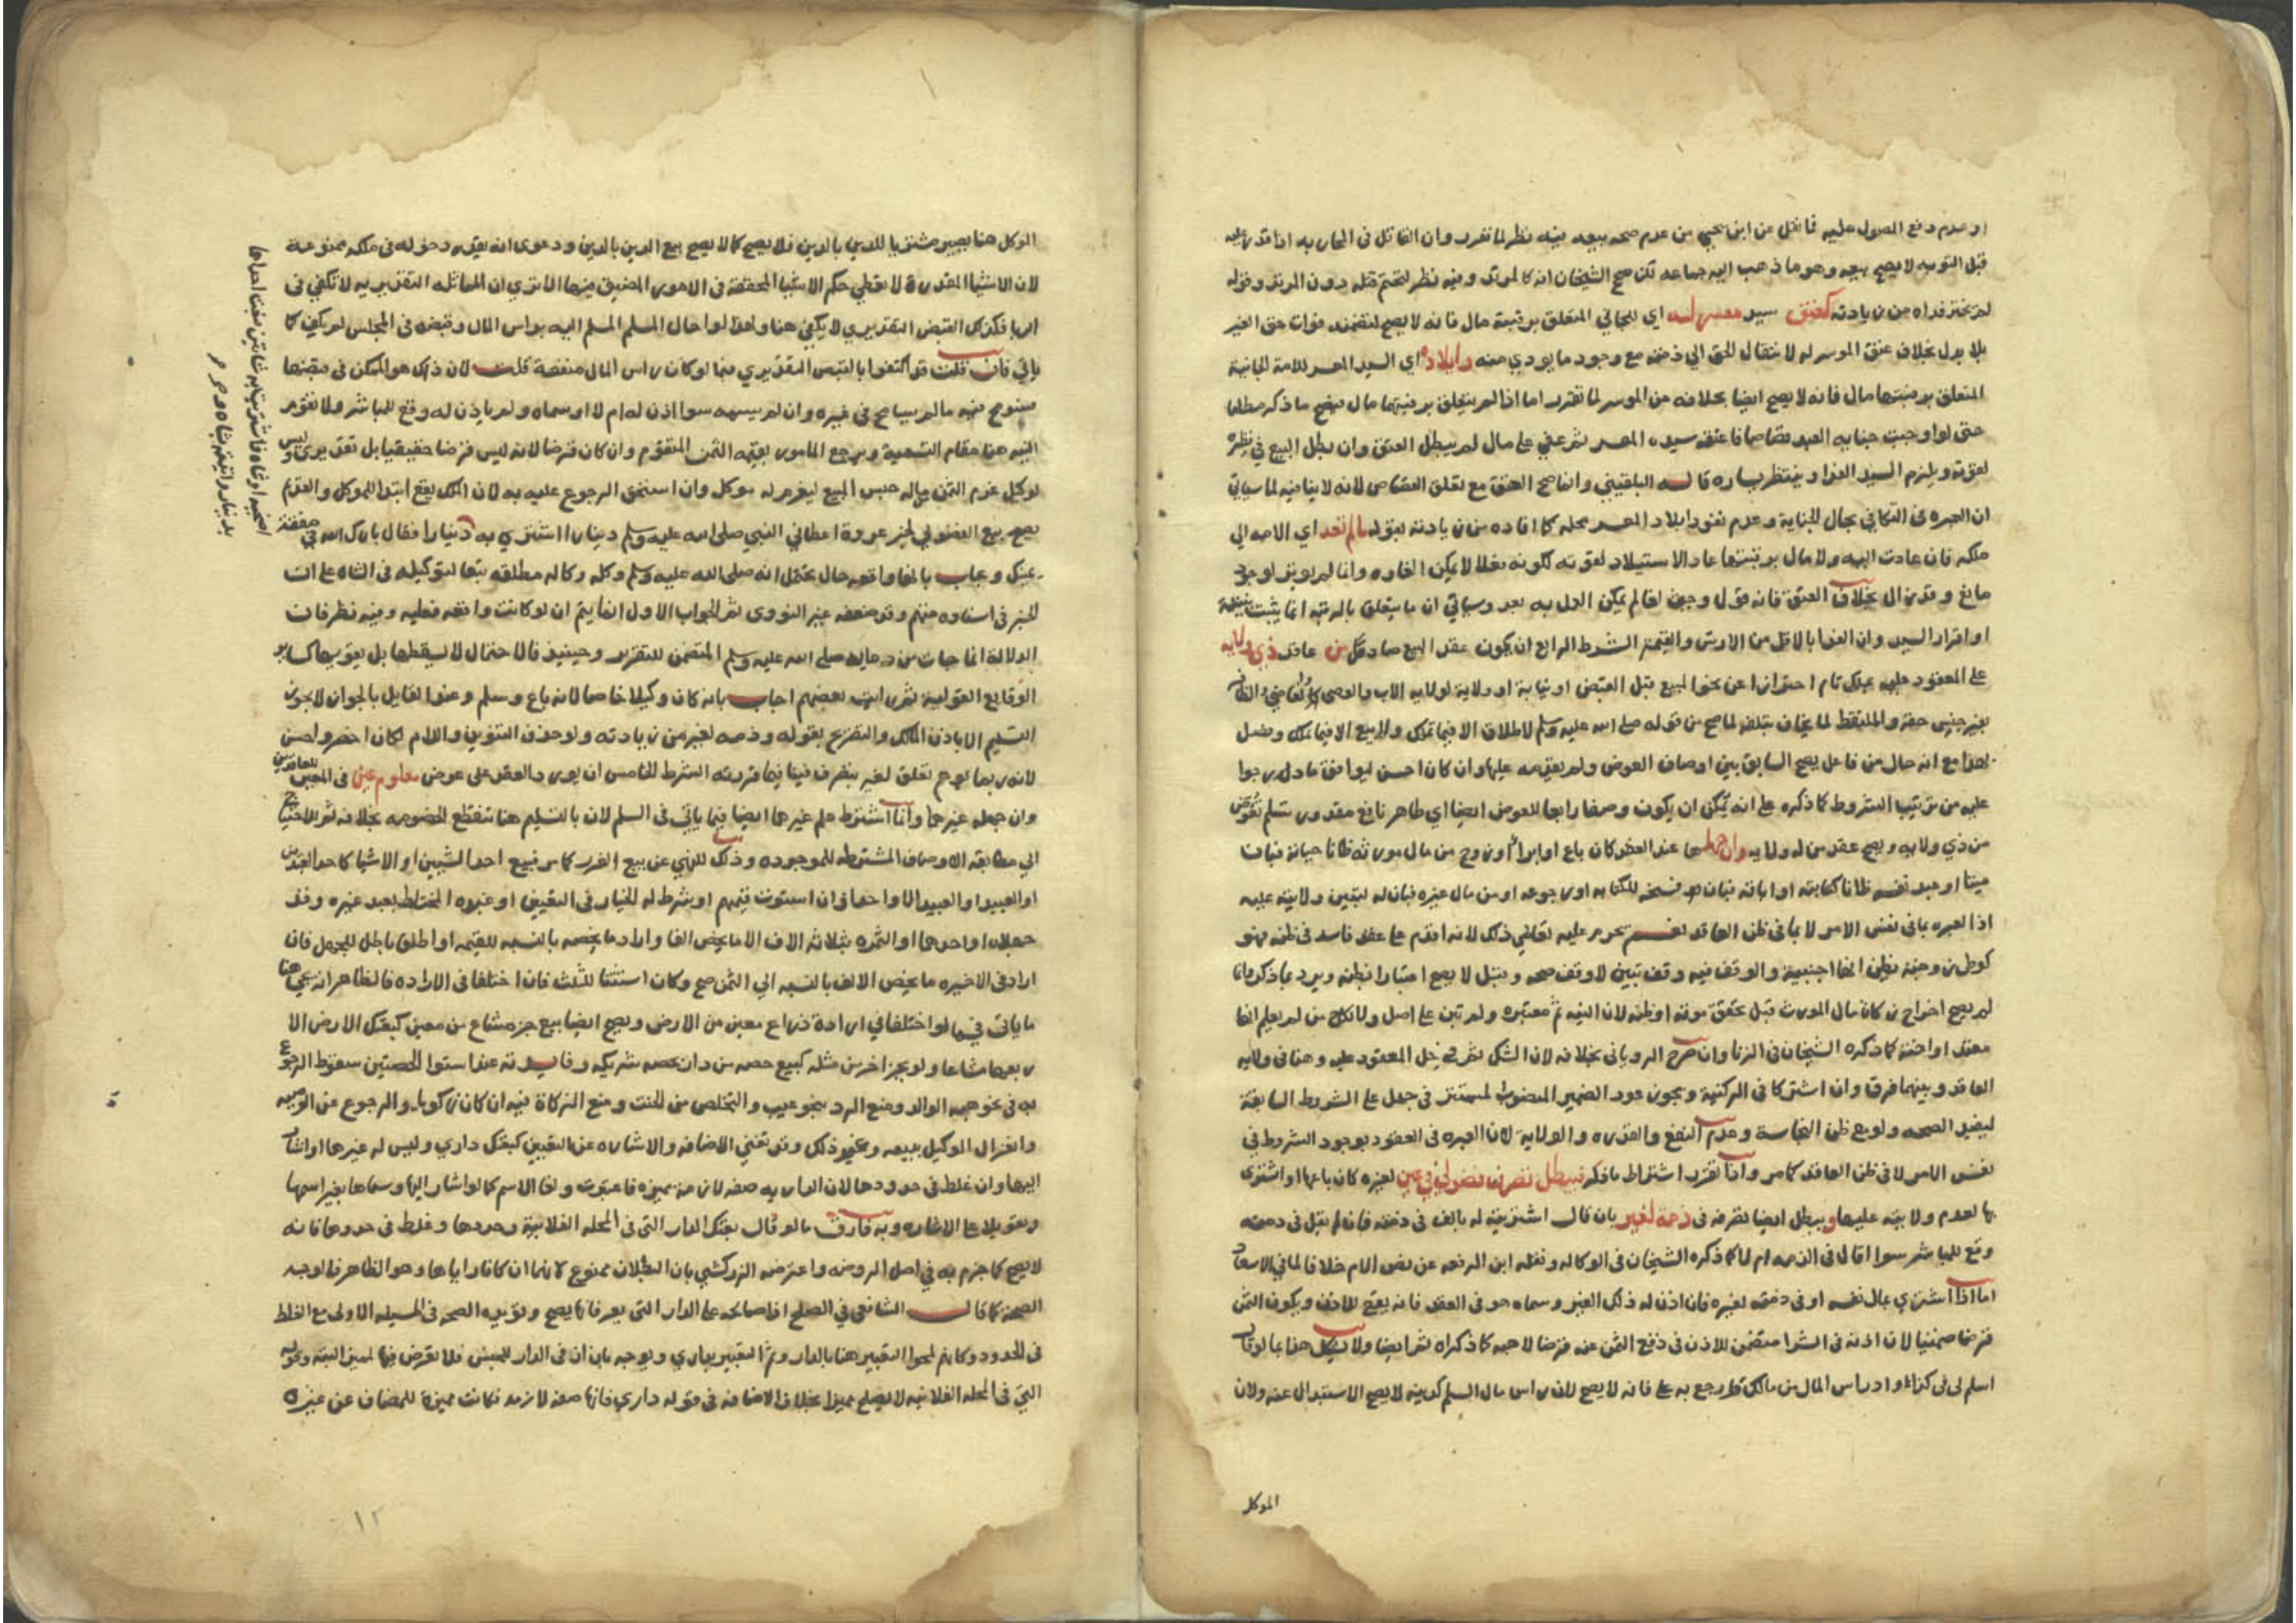 او عدم دفع الصول عليه فما نقل عن ابن يحيى من عدم صحه بيعه فيه نظر لما تقرر وان القاتل في المحاربه اذا قدر عليه
قبل التوبه لا يصح بيعه وهو ما ذهب اليه جماعه لكن صحح الشيخان انه كالمرتد وفيه نظر لتحتم قتله دون المرتد وقوله
لم يختر فداه من زيادته كعتق سيد معسر له اي للجاني المتعلق برقبته مال فانه لا يصح لتضمنه فوات حق الغير
بلا بدل بخلاف عتق الموسر له لانتقال الحق الي ذمته مع وجود ما يودي منه وايلاده اي السيد المعسر للامة الجانية
المتعلق برقبتها مال فانه لا يصح ايضا بخلافه من الموسر لما تقرر اما اذا لم يتعلق برقبتهما مال فيصح ما ذكر مطلقا
حتى لو اوجبت جنايه العبد قصاصا فاعتقه سيده المعسر ثم عفي على مال لم يبطل العتق وان بطل البيع في نظره
لقوته ويلزم السيد الفدا وينتظر يساره قاله البلقيني وانما صح العتق مع تعلق القصاص لانه لا ينافيه لما سياتي
ان العبره في التكافي بحال الجناية وعدم نفوذ ايلاد المعسر محله كما افاده من زيادته بقوله ما لم تعد اي الامه الي
ملكه فان عادت اليه ولا مال برقبتها عاد الاستيلاد لقوته لكونه فعلا لا يمكن الغاوه وانما لم يوثر لوجود
مانع وقد زال بخلاف العتق فانه قول وحين لغا لم يمكن العمل به بعد وسياتي ان ما يتعلق بالرقبه انما يثبت ببينة
او اقرار السيد وان الفدا بالاقل من الارش والقيمة الشرط الرابع ان يكون عقد البيع صادر من عاقد ذي ولايه
على المعقود عليه بملك تام احترازا عن نحو المبيع قبل القبض او نيابة او ولاية لولايه الاب والوصي والقاضي والظافر
بغير جنس حقه والملتقط لما يخاف تلفه لما صح من قوله صلى الله عليه وسلم لا طلاق الا فيما تملك ولا بيع الا فيما تملك وفصل
هذا مع انه حال من فاعل يصح السابق بين اوصاف العوض ولم يقدمه عليها وان كان احسن ليوافق ما درجوا
عليه من ترتيب الشروط كما ذكره على انه يمكن ان يكون وصفا رابعا للعوض ايضا اي طاهر نافع مقدور تسلم لعوض
من ذي ولايه ويصح عقد من له ولايه وان جهلها عند العقد كان باع او ابرا او زوج من مال مورثه ظانا حياته فبان
ميتا او عبد نفسه ظانا كتابته او اباقه فبان فسخه للكتابه او رجوعه او من مال غيره فبان له لتبين ولايته عليه
اذ العبره بما في نفس الامر لا بما في ظن العاقد نعم يحرم عليه تعاطي ذلك لانه اقدم على عقد فاسد في ظنه فهو
كوطي زوجته بظن انها اجنبية والوقف فيه وقف تبيين لا وقف صحه وقيل لا يصح اعتبارا بظنه ويرد بما ذكر وانما
لم يصح اخراج زكاة مال المورث قبل تحقق موته او ظنه لان النيه ثم معتبره ولم تبن على اصل ولا نكاح من لم يعلم انها
معتدة او اخته كما ذكره الشيخان في الزنا وان صرح الروياني بخلافه لان الشك ثم في حل المعقود عليه وهنا في ولايه
العاقد وبينهما فرق وان اشتركا في الركنية ويجوز عود الضمير المنصوب المستتر في جهل على الشروط السابقة
ليفيد الصحه ولو مع ظن النجاسة وعدم النفع والقدره والولاية لان العبره في العقود بوجود الشروط في
نفس الامر لا في ظن العاقد كما مر واذا تقرر اشتراط ما ذكر فيبطل تصرف فضولي في عين لغيره كان باعها او اشتري
بها لعدم ولايته عليها ويبطل ايضا تصرفه في ذمة لغير بان قال اشتريته له بالف في ذمته فان لم يقل في ذمته
وقع للمباشر سوا قال في الذمه ام لا كما ذكره الشيخان في الوكاله ونقله ابن الرفعه عن نص الام خلافا لما في الاسعاد
اما اذا اشتري بمال نفسه او في ذمته لغيره فان اذن له ذلك الغير وسماه هو في العقد فانه يقع للاذن ويكون الثمن
قرضا ضمنيا لان اذنه في الشرا متضمن للاذن في دفع الثمن عنه قرضا لاهبه كما ذكراه ثم ايضا ولا يشكل هذا بما لو قال
اسلم لي في كذا واد راس المال من مالك وارجع به على فانه لا يصح لان راس مال السلم كدينه لا يصح الاستبدال عنه ولان
الموكل
الموكل هنا يصير مشتريا للدين بالدين فلا يصح كما لا يصح بيع الدين بالدين ودعوى انه يقدر دخوله في ملكه ممنوعة
لان الاشيا المقدرة لا تعطي حكم الاشيا المحققة في الامور المضيق فيها الا تري ان المماثله التقديريه لا تكفي في
الربا فكذلك القبض التقديري لا يكفي هنا ولهذا لو احال المسلم المسلم اليه براس المال وقبضه في المجلس لم يكف كما
ياتي فان قلت قد اكتفوا بالقبض التقديري فيما لو كان راس المال منفعة قلت لان ذلك هو الممكن في قبضها
فسومح فيه ما لم يسامح في غيره وان لم يسمه سوا اذن له ام لا او سماه ولم ياذن له وقع للمباشر ولا تقوم
النيه هنا مقام التسمية ويرجع المامور بقيمه الثمن المتقوم وان كان قرضا لانه ليس قرضا حقيقيا بل تقديري وليس
لوكيل غرم الثمن من ماله حبس المبيع ليغرم له موكل وان استحق الرجوع عليه به لان الملك يقع ابتدا للموكل والقديم
يصح بيع الفضولي لخبر عروة اعطاني النبي صلى الله عليه وسلم دينارا اشتري به دينارا فقال بارك الله في صفقة
يمينك ويجاب بانها واقعه حال يحتمل انه صلى الله عليه وسلم وكله وكاله مطلقه تبعا لتوكيله في الشاه على ان
الخبر في اسناده متهم وقد ضعفه غير النووي ثم الجواب الاول انما يتم ان لو كانت واقعه فعليه وفيه نظر فان
الدلالة انما جات من دعايه صلى الله عليه وسلم المتضمن للتقرير وحينيذ فالاحتمال لا يسقطها بل يقويها كساير
الوقايع القولية ثم رايت بعضهم اجاب بانه كان وكيلا خاصا لانه باع وسلم وعند القايل بالجواز لا يجوز
التسليم الا باذن المالك والتفريع بقوله وذمه لغير من زيادته ولو حذف التنوين واللام لكان اخصر واحسن
لانه ربما يوهم تعلق لغير بتصرف فيتافيا قررته الشرط الخامس ان يورد العقد على عوض معلوم عين في المعين للعاقدين
وان جهله غيرهما وانما اشترط علم غيرهما ايضا فيما ياتي في السلم لان بالتسليم هنا تنقطع الخصومه بخلافه ثم للاحتياج
الي مطابقة الاوصاف المشترطه للموجوده وذلك للنهي عن بيع الغرر كما مر فبيع احد الشيين او الاشيا كاحد العبدين
او العبيد او العبيد الا واحدا وان استوت قيمتهم او بشرط له الخيار في التعيين او عبده المختلط بعبد غيره وقد
جهلاه او احدهما او الثمره بثلاثه الاف الا ما يخص الفا وارادا ما يخصه بالنسبه للقيمه او اطلق باطل للجهل فان
اراد في الاخيره ما يخص الالف بالنسبه الي الثمن صح وكان استثنا للثلث فان اختلفا في الاراده فالظاهر انه يجي هنا
ما ياتي فيما لو اختلفا في ارادة ذراع معين من الارض ويصح ايضا بيع جزء مشاع من معين كبعتك الارض الا
ربعها مشاعا ولو بجز اخر من مثله كبيع حصه من دار بحصه شريكه وفايدته عند استوا الحصتين سقوط الرجوع
به في نحو هبه الوالد ومنع الرد بنحو عيب والتخلص من الحنث ومنع الزكاة فيه ان كان زكويا والرجوع عن الوصيه
وانعزال الموكيل ببيعه وغير ذلك وقد تغني الاضافه والاشاره عن التعيين كبعتك داري وليس له غيرها او اشار
اليها وان غلط في حدودها لان الداريه صفه لازمة مميزه فاعتبرت ولغا الاسم كما لو اشار اليها وسماها بغير اسمها
وتعويلا على الاشاره وبه فارق ما لو قال بعتك الدار التي في المحله الفلانية وحددها وغلط في حدودها فانه
لا يصح كما جزم به في اصل الروضه واعترضه الزركشي بان البطلان ممنوع لانهما ان كانا راياها وهو الظاهر فالوجه
الصحة كما قال الشافعي في الصلح اذا صالحه على الدار التي يعرفانها يصح ويويده الصحه في المسيله الاولى مع الغلط
في الحدود وكانهم لمحوا التعبير هنا بالدار وثم التعبير بداري ويوجه بان ال في الدار للجنس فلا تعرض فيها لمميز البته وقوله
التي في المحله الفلانيه لا يصلح مميزا بخلاف الاضافه في قوله داري فانها صفه لازمه فكانت مميزة للمضاف عن غيره
اضحيه او شاة فاشتريت به شاتين فبعت احداهما
بدينار واتيته بشاه ودينار
١٢